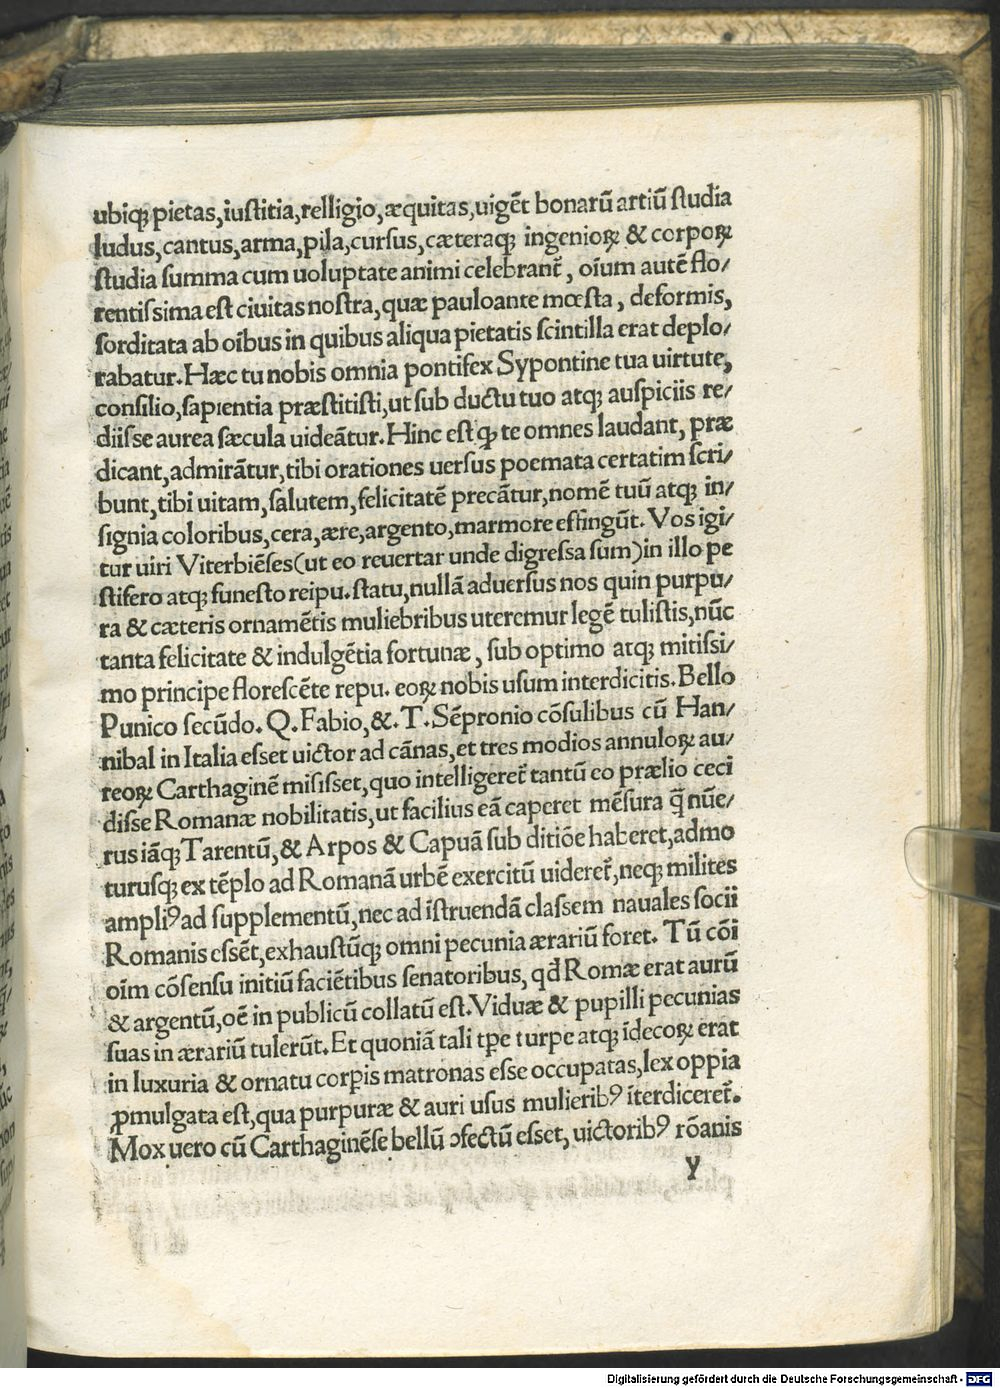 ubiqꝫ pietas,iustitia,relligio,æquitas,uigēt bonarū artiū studia
ludus,cantus,arma,pila,cursus,cæteraqꝫ ingenioꝝ & corpoꝝ
studia summa cum uoluptate animi celebrant̃, oīum autē flo/
rentissima est ciuitas nostra,quæ pauloante mœsta, deformis,
sorditata ab oībus in quibus aliqua pietatis scintilla erat deplo/
rabatur.Hæc tu nobis omnia pontifex Sypontine tua uirtute,
consilio,sapientia præstitisti,ut sub ductu tuo atqꝫ auspiciis re/
diisse aurea sæcula uideātur.Hinc est ꝙ te omnes laudant, præ
dicant,admirātur,tibi orationes uersus poemata certatim scri/
bunt,tibi uitam,salutem,felicitatē precātur,nomē tuū atqꝫ in/
signia coloribus,cera,ære,argento,marmore effingūt. Vos igi/
tur uiri Viterbiēses(ut eo reuertar unde digressa sum)in illo pe
stifero atqꝫ funesto reipu.statu,nullā aduersus nos quin purpu/
ra & cæteris ornamētis muliebribus uteremur legē tulistis,nūc
tanta felicitate & indulgētia fortunæ, sub optimo atqꝫ mitissi/
mo principe florescēte repu. eoꝝ nobis usum interdicitis.Bello
Punico secūdo.Q.Fabio,&.T.Sēpronio cōsulibus cū Han/
nibal in Italia esset uictor ad cānas,et tres modios annuloꝝ au/
reoꝝ Carthaginē misisset,quo intelligeret̃ tantū eo prælio ceci
disse Romanæ nobilitatis,ut facilius eā caperet mēsura q̄ nūe/
rus iāqꝫ Tarentū,& Arpos & Capuā sub ditiōe haberet,admo
turusqꝫ ex tēplo ad Romanā urbē exercitū uideret̃,neqꝫ milites
ampliꝰ ad supplementū,nec ad īstruendā classem nauales socii
Romanis essēt,exhaustūqꝫ omni pecunia ærariū foret. Tū cōi
oīm cōsensu initiū faciētibus senatoribus, qđ Romæ erat aurū
& argentū,oē in publicū collatū est.Viduæ & pupilli pecunias
suas in ærariū tulerūt.Et quoniā tali tꝑe turpe atqꝫ īdecoꝝ erat
in luxuria & ornatu corꝑis matronas esse occupatas,lex oppia
ꝓmulgata est,qua purpuræ & auri usus mulieribꝰ īterdiceret̃.
Mox uero cū Carthaginēse bellū ↄfectū esset, uictoribꝰ rōanis
y
Digitalisierung gefördert durch die Deutsche Forschungsgemeinschaft - DFG